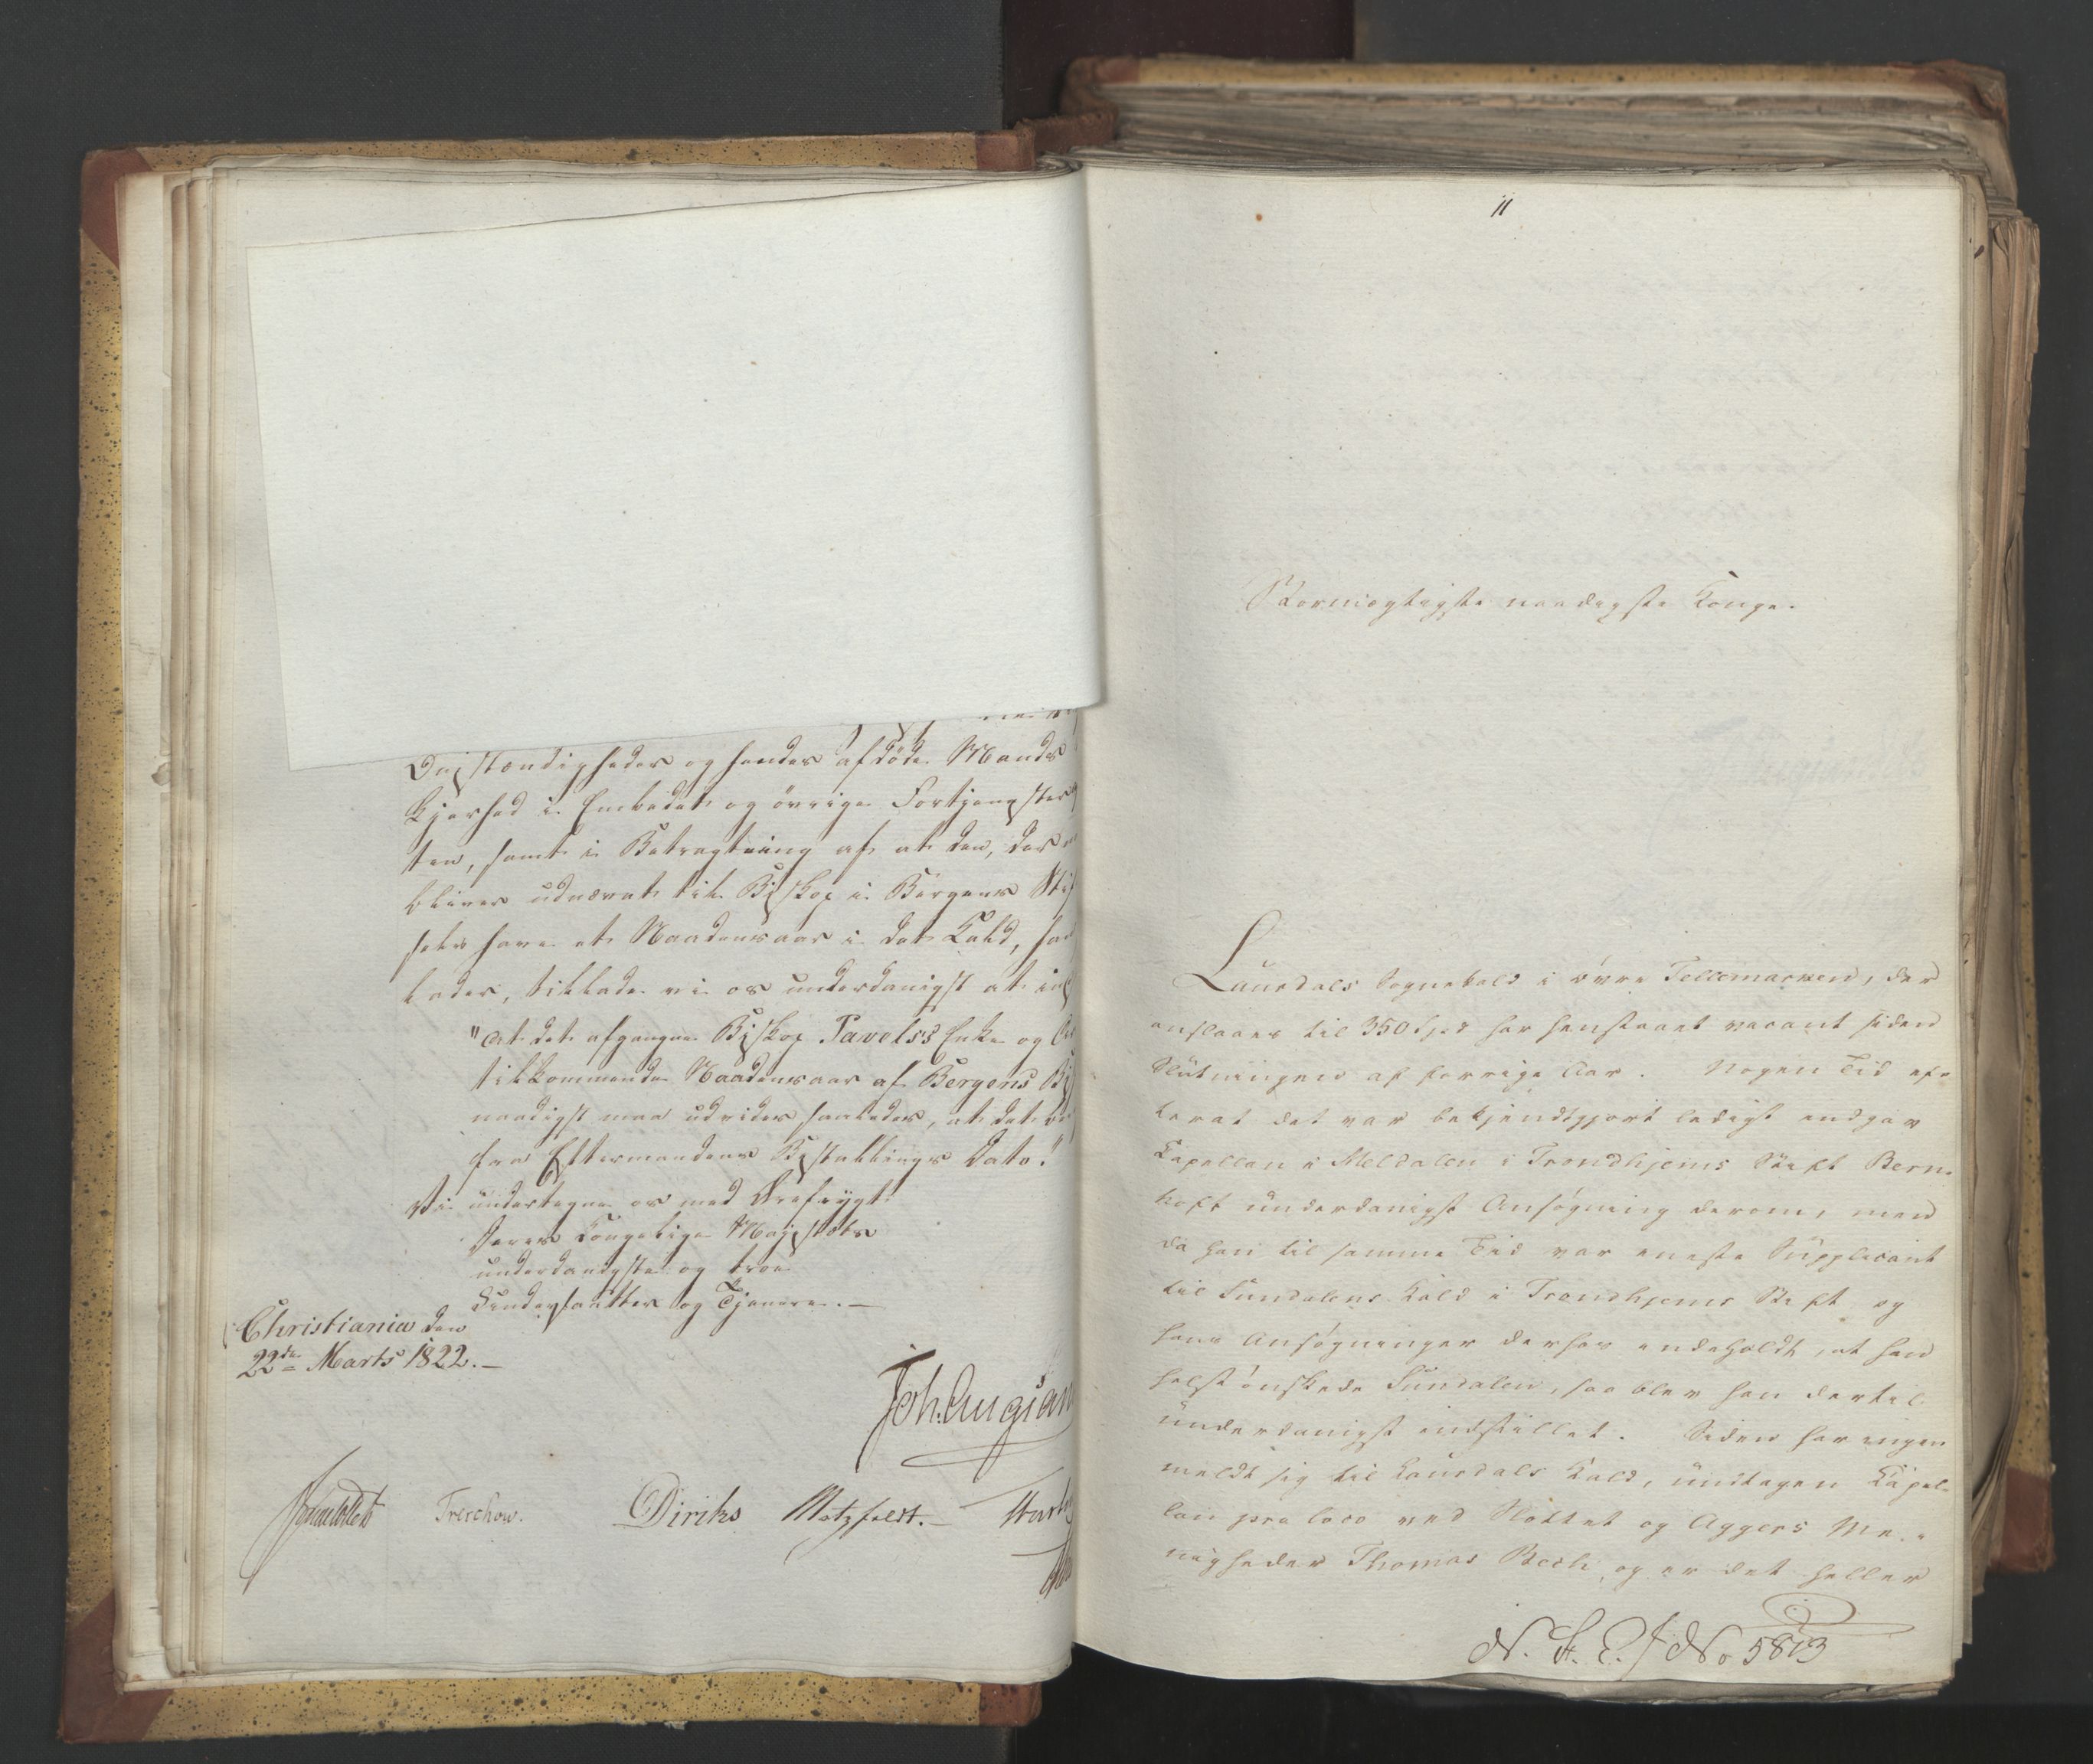 Omstændigheder og hendes afdøde Mands
Kjærhed i Embedet og övrige Fortjenester
ten, samt i Betragtning af at den, der
bliver udnævnt til Biskop i Bergens Stif
have et Naadensaar i det Kald, han
lader, tillade vi os underdanigst at ind
"at det afgangne Biskop Pavelss Enke og
tilkommende Naadensaar af Bergens Bi
naadigst maa udvides saaledes, at det
fra Eftermandens Bestallings Dato."
Vi undertegne os med Ærefrygt
Deres Kongelige Majestæts
underdanigste og troe
Undersaatter og Tjenere.—
Christiania den
22de Marts 1822.—
Joh. Aug: San
Sommerfeldt Treschow. Diriks Motzfeldt.—
11
Stormægtigste naadigste Konge.
Laurdals Sognekald i övre Tellemarken, der
anslaaes til 350 Spd har henstaaet vacant siden
Slutningen af forrige Aar. Nogen Tid ef-
terat det var bekjendtgjort ledigt indgav
Capellan i Meldalen i Trondhjems Stift Bern-
hoft underdanigst Ansøgning derom, men
da han til samme Tid var eneste Supplicant
til Sundalens Kald i Trondhjems Stift og
hans Ansøgninger derhos indeholdt, at han
helst ønskede Sundalen, saa blev han dertil
underdanigst indstillet. Siden har ingen
meldt sig til Laurdals Kald, undtagen Capel-
lan pro loco ved Slottet og Aggers Me-
nigheder Thomas Bech, og er det heller
N. St. E. J No 5813